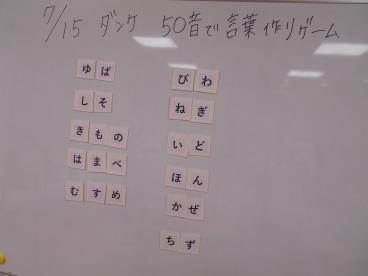 7/15 ダンケ 50音で言葉作りゲーム
ゆば
しそ
きもの
はまべ
むすめ
びわ
ねぎ
いど
ほん
かぜ
ちず